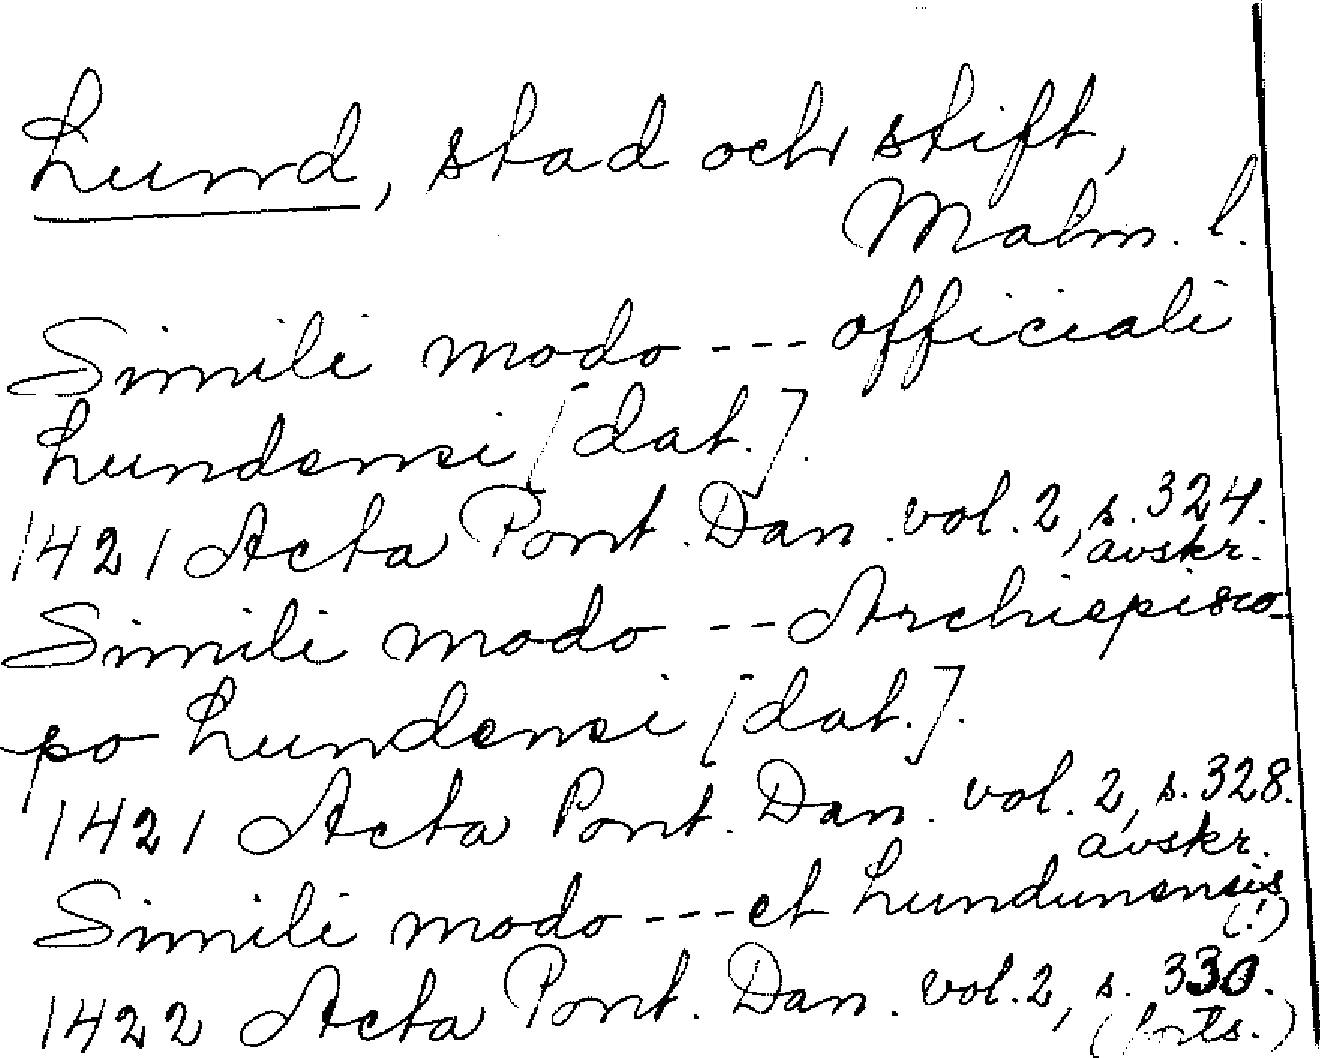 Lund, stad och stift,
Malm. l.
Simili modo --- officiali
Lundensi [dat.].
1421 Acta Pont. Dan. vol. 2, s. 324.
avskr.
Simili modo --- Archiepisco-
po Lundensi [dat.].
1421 Acta Pont. Dan. vol. 2, s. 328.
avskr.
Simili modo --- et Lundunensis
(!)
1422 Acta Pont. Dan. vol. 2, s. 330.
(forts.)